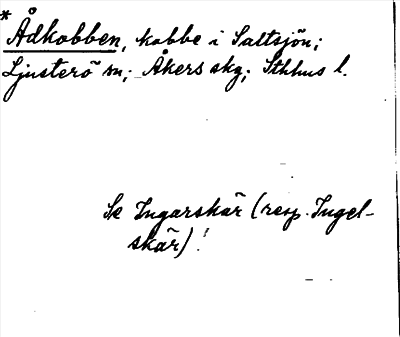 * Ådkobben, kobbe i Saltsjön;
Ljusterö sn; Åkers skg; Sthlms l.
Se Ingarskär (resp. Ingel-
skär)!